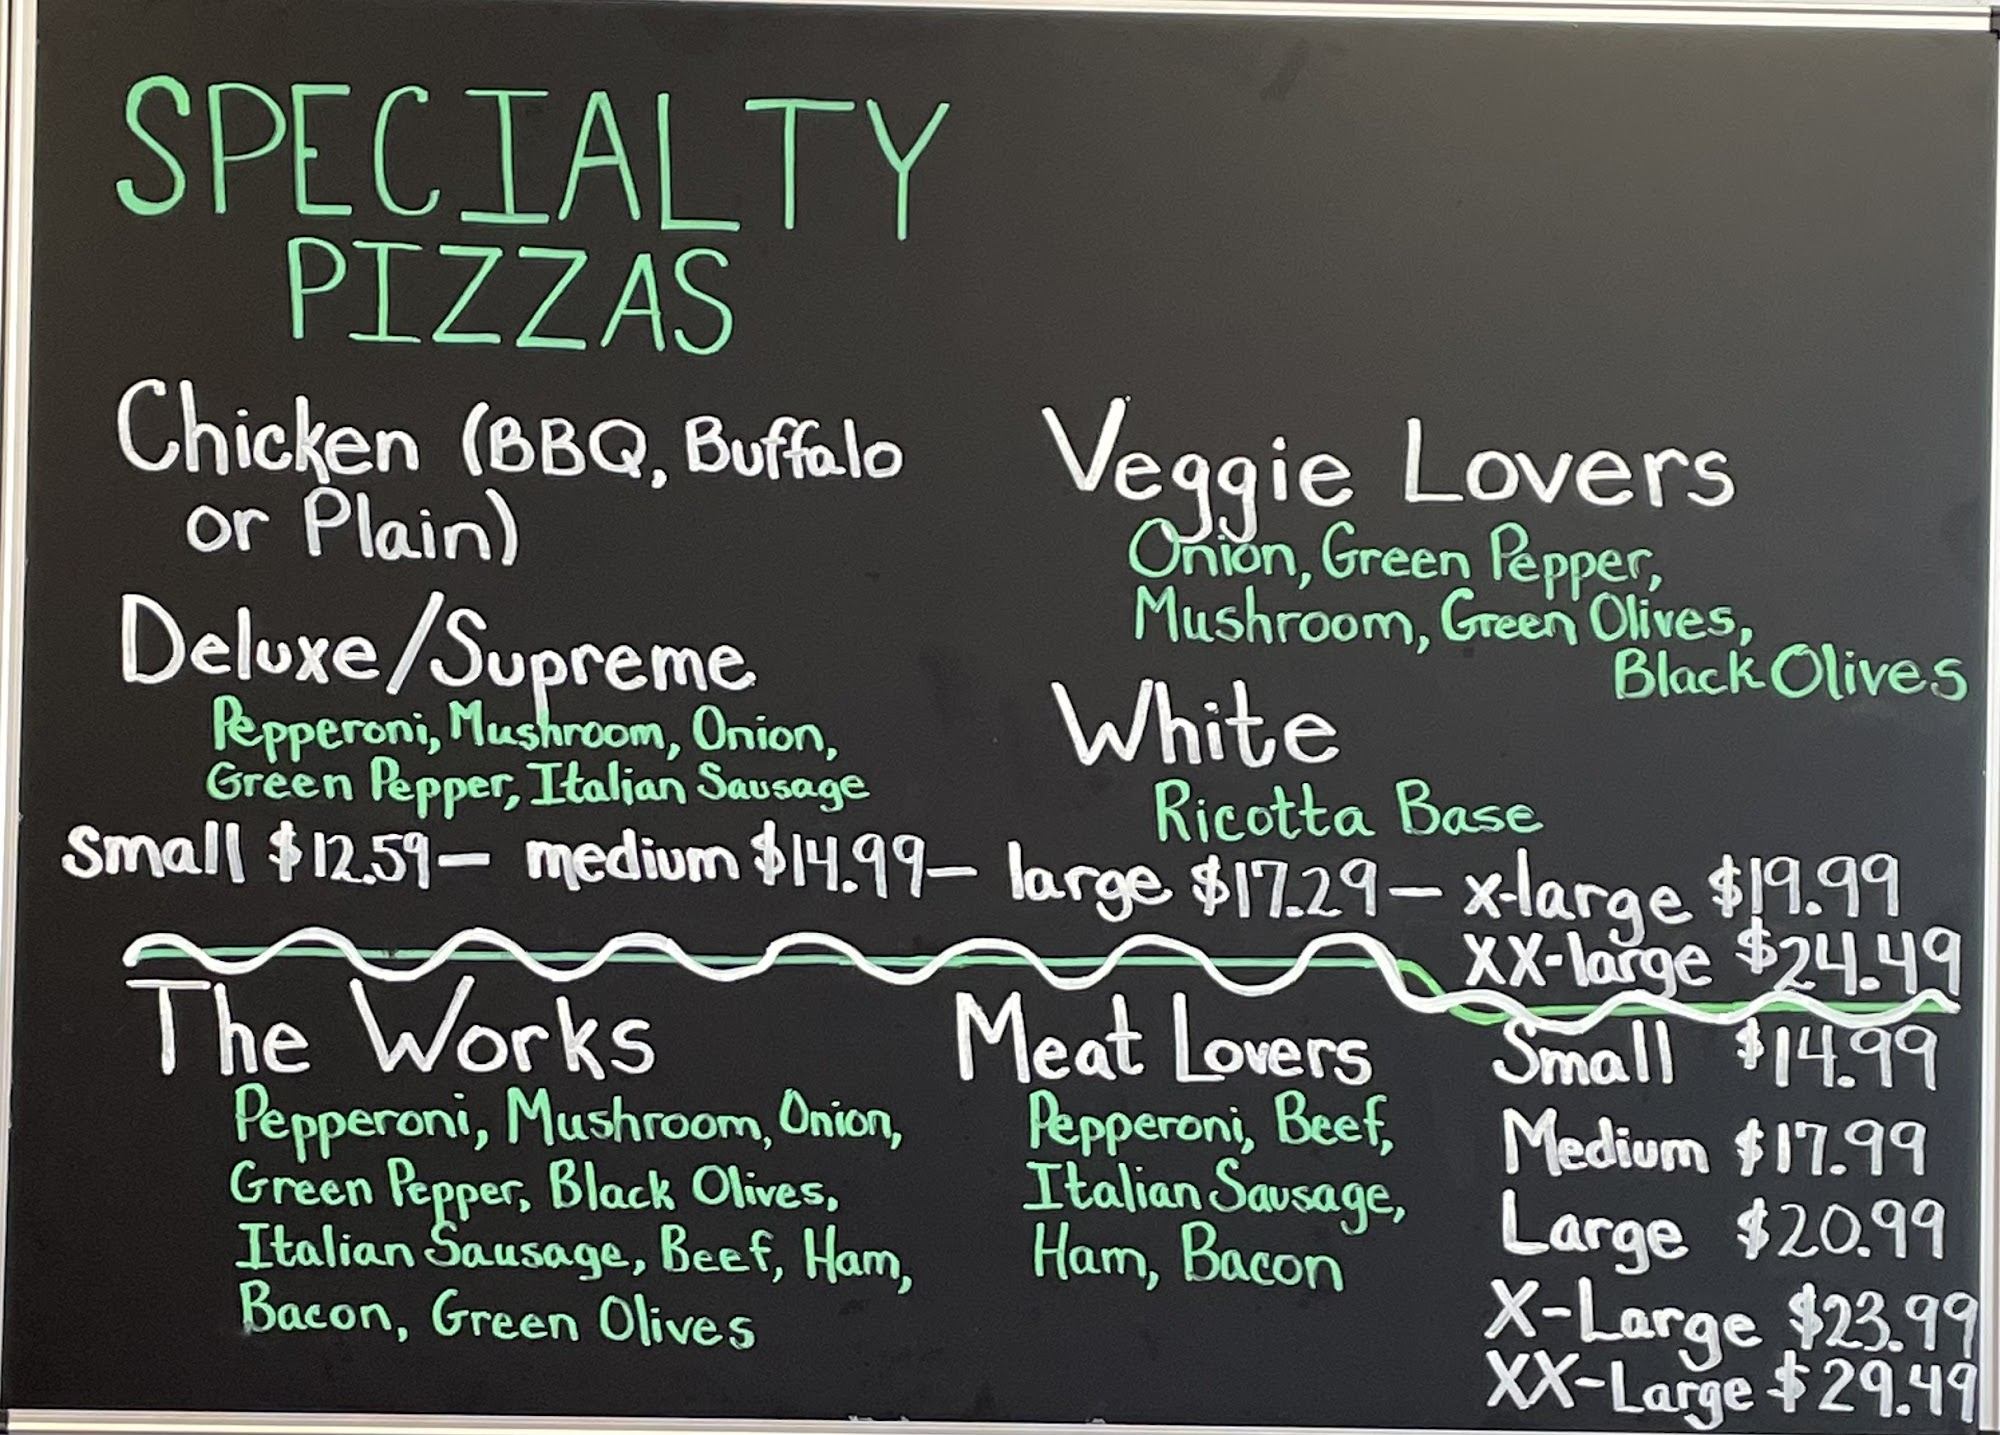 SPECIALTY
PIZZAS
Chicken (BBQ, Buffalo
or Plain)
Deluxe/Supreme
Pepperoni, Mushroom, Onion,
Green Pepper, Italian Sausage
Veggie Lovers
Onion, Green Pepper,
Mushroom, Green Olives,
Black Olives
White
Ricotta Base
small $12.59— medium $14.99— large $17.29— x-large $19.99
XX-large $24.49
The Works
Pepperoni, Mushroom, Onion,
Green Pepper, Black Olives,
Italian Sausage, Beef, Ham,
Bacon, Green Olives
Meat Lovers
Pepperoni, Beef,
Italian Sausage,
Ham, Bacon
Small $14.99
Medium $17.99
Large $20.99
X-Large $23.99
XX-Large $29.49